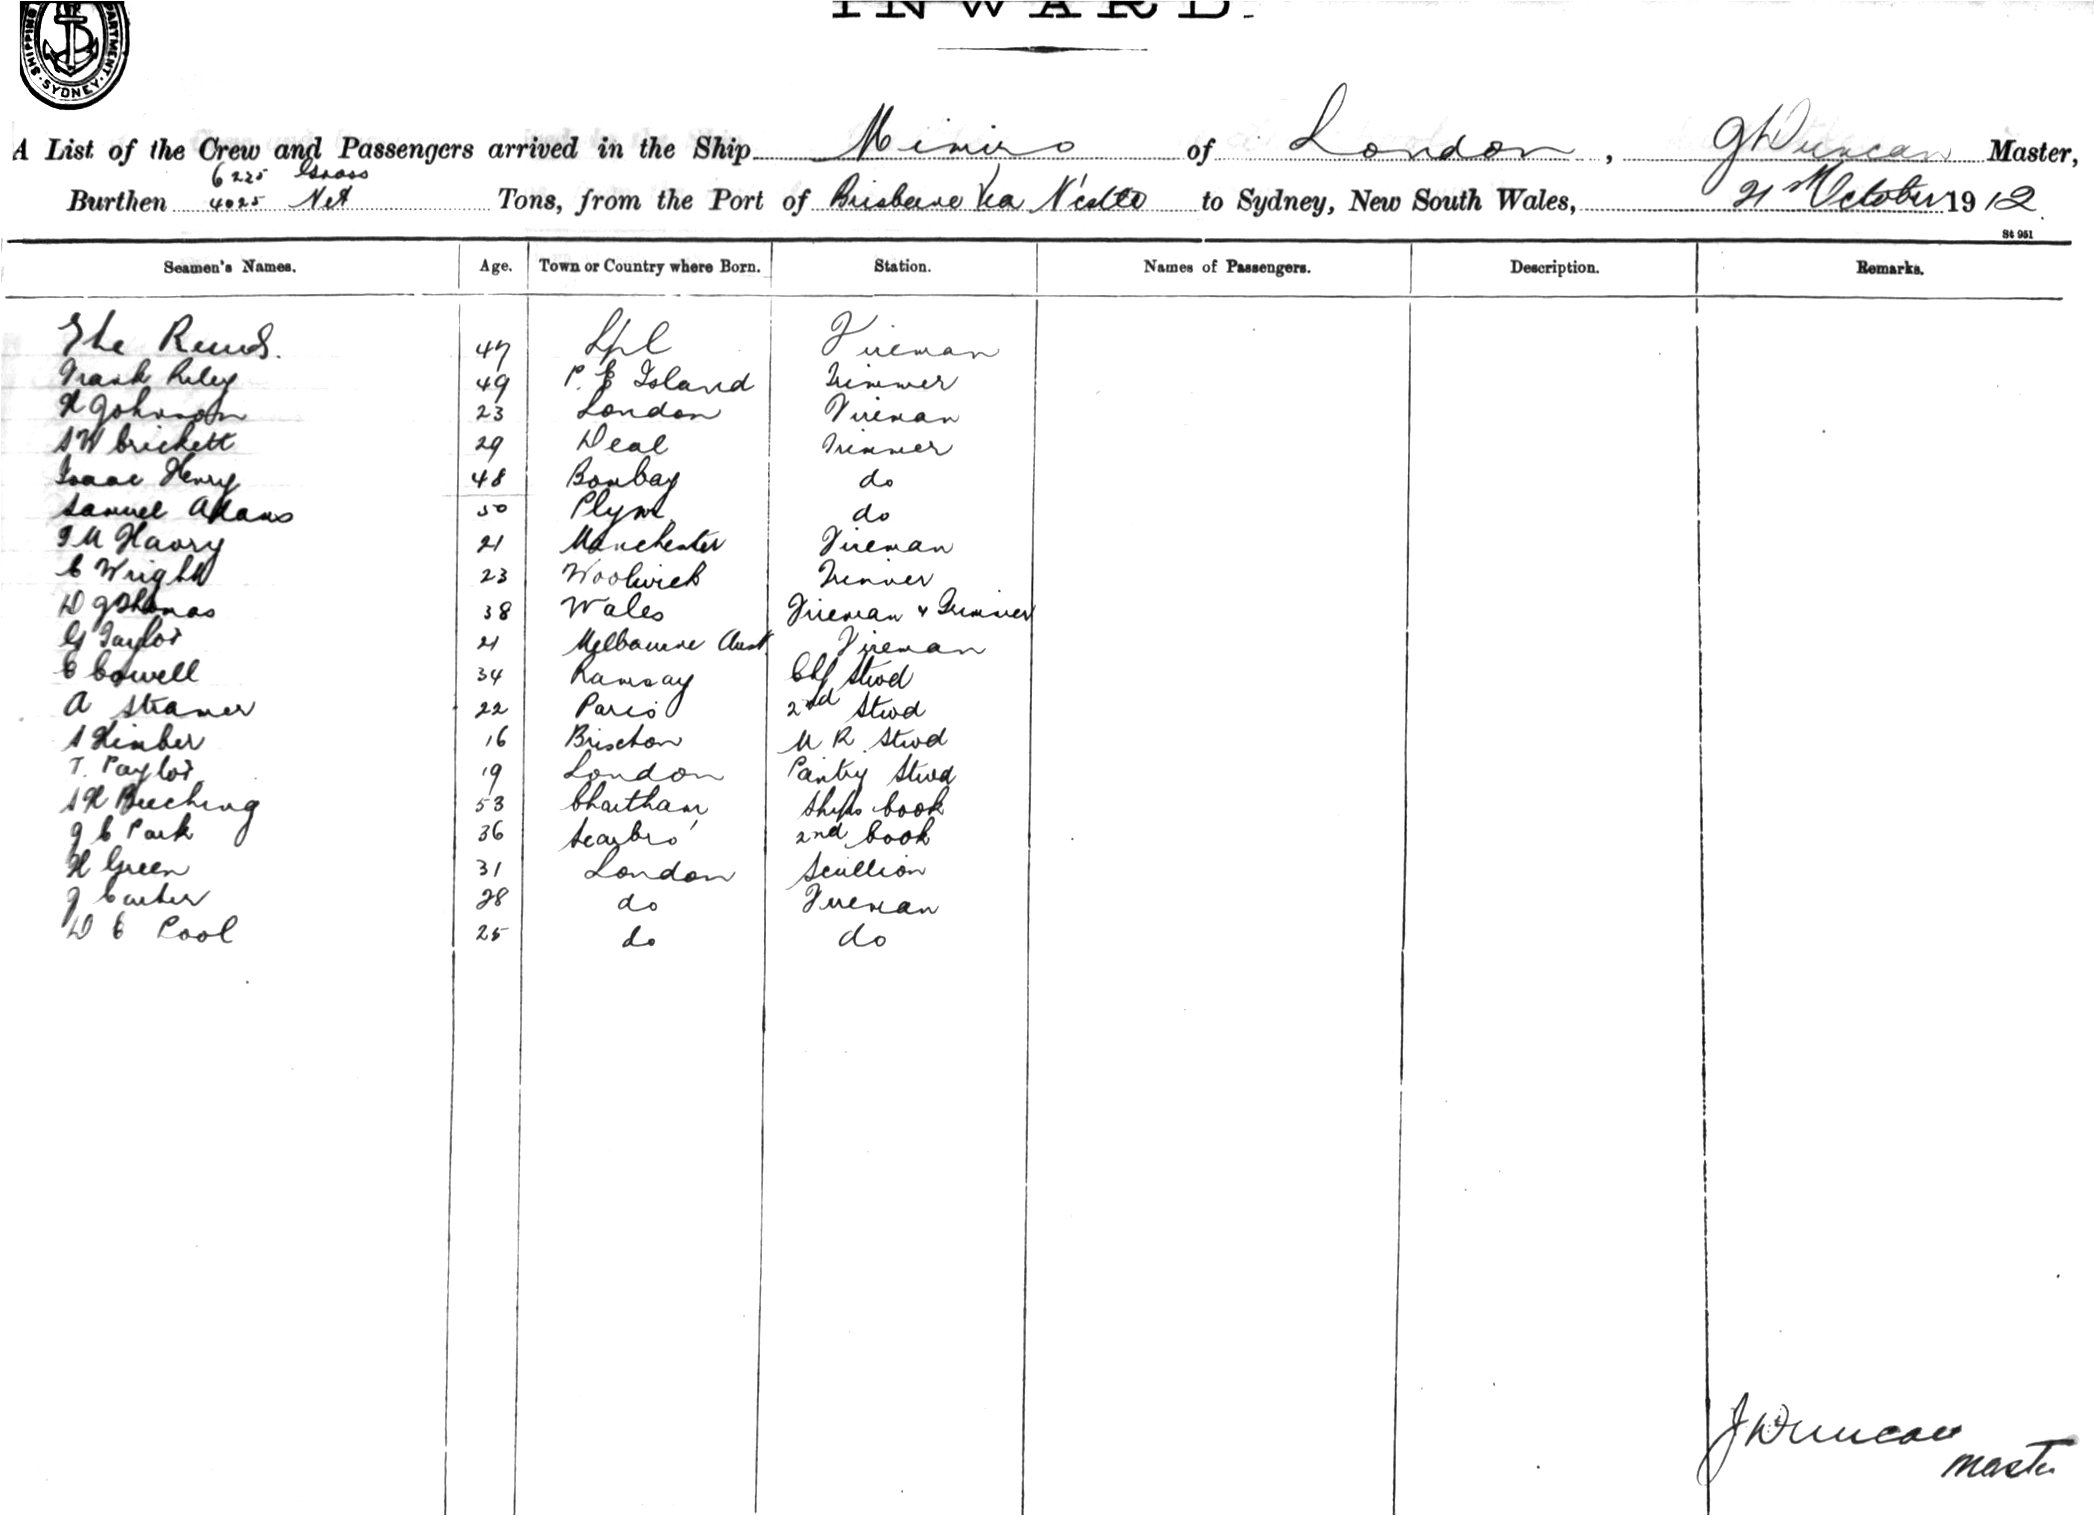 SHIPPING DEPARTMENT · SYDNEY ·
INWARD.
A List of the Crew and Passengers arrived in the Ship Mimiro of London, J Duncan Master,
6225 Gross
Burthen 4025 Net Tons, from the Port of Brisbane Via N'castle to Sydney, New South Wales, 21st October 1912
St 951
Seamen's Names. Age. Town or Country where Born. Station. Names of Passengers. Description. Remarks.
47 Lpl Fireman
Frank Riley 49 P. E Island Trimmer
H Johnson 23 London Fireman
S W Crickett 29 Deal Trimmer
Isaac Henry 48 Bombay do
Samuel Adams 50 Plym do
21 Manchester Fireman
C Wright 23 Woolwich Trimmer
D J Thomas 38 Wales Fireman & Trimmer
G Taylor 21 Melbourne Aust Fireman
C Cowell 34 Ramsay Chf Stwd
A 22 Paris 2nd Stwd
16 M R Stwd
T. Paylor 19 London Pantry Stwd
S H Beeching 53 Chartham Ships Cook
J C Park 36 Scarbro' 2nd Cook
H Green 31 London Scullion
J Carter 28 do Fireman
D C Pool 25 do do
J Duncan
Master